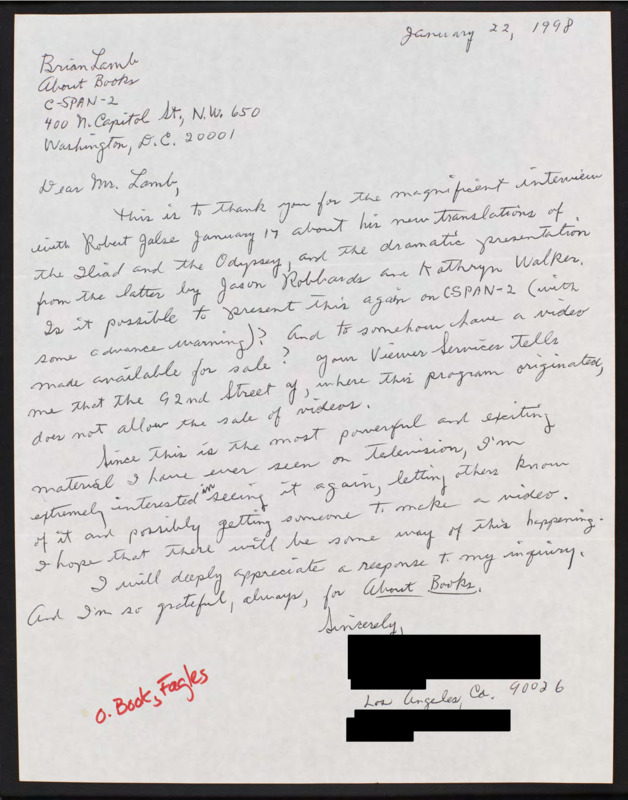 January 22, 1998
Brian Lamb
About Books
C-SPAN-2
400 N. Capitol St., N.W. 650
Washington, D.C. 20001
Dear Mr. Lamb,
This is to thank you for the magnificent interview
with Robert January 17 about his new translations of
the Iliad and the Odyssey, and the dramatic presentation
from the latter by Jason Robbards and Kathryn Walker.
Is it possible to present this again on CSPAN-2 (with
some advance warning)? And to somehow have a video
made available for sale? Your Viewer Services tells
me that the 92nd Street Y, where this program originated,
does not allow the sale of videos.
Since this is the most powerful and exciting
material I have ever seen on television, I'm
extremely interested in seeing it again, letting others know
of it and possibly getting someone to make a video.
I hope that there will be some way of this happening.
I will deeply appreciate a response to my inquiry.
And I'm so grateful, always, for About Books.
Sincerely,
Los Angeles, Ca. 90026
O. Book, Fagles